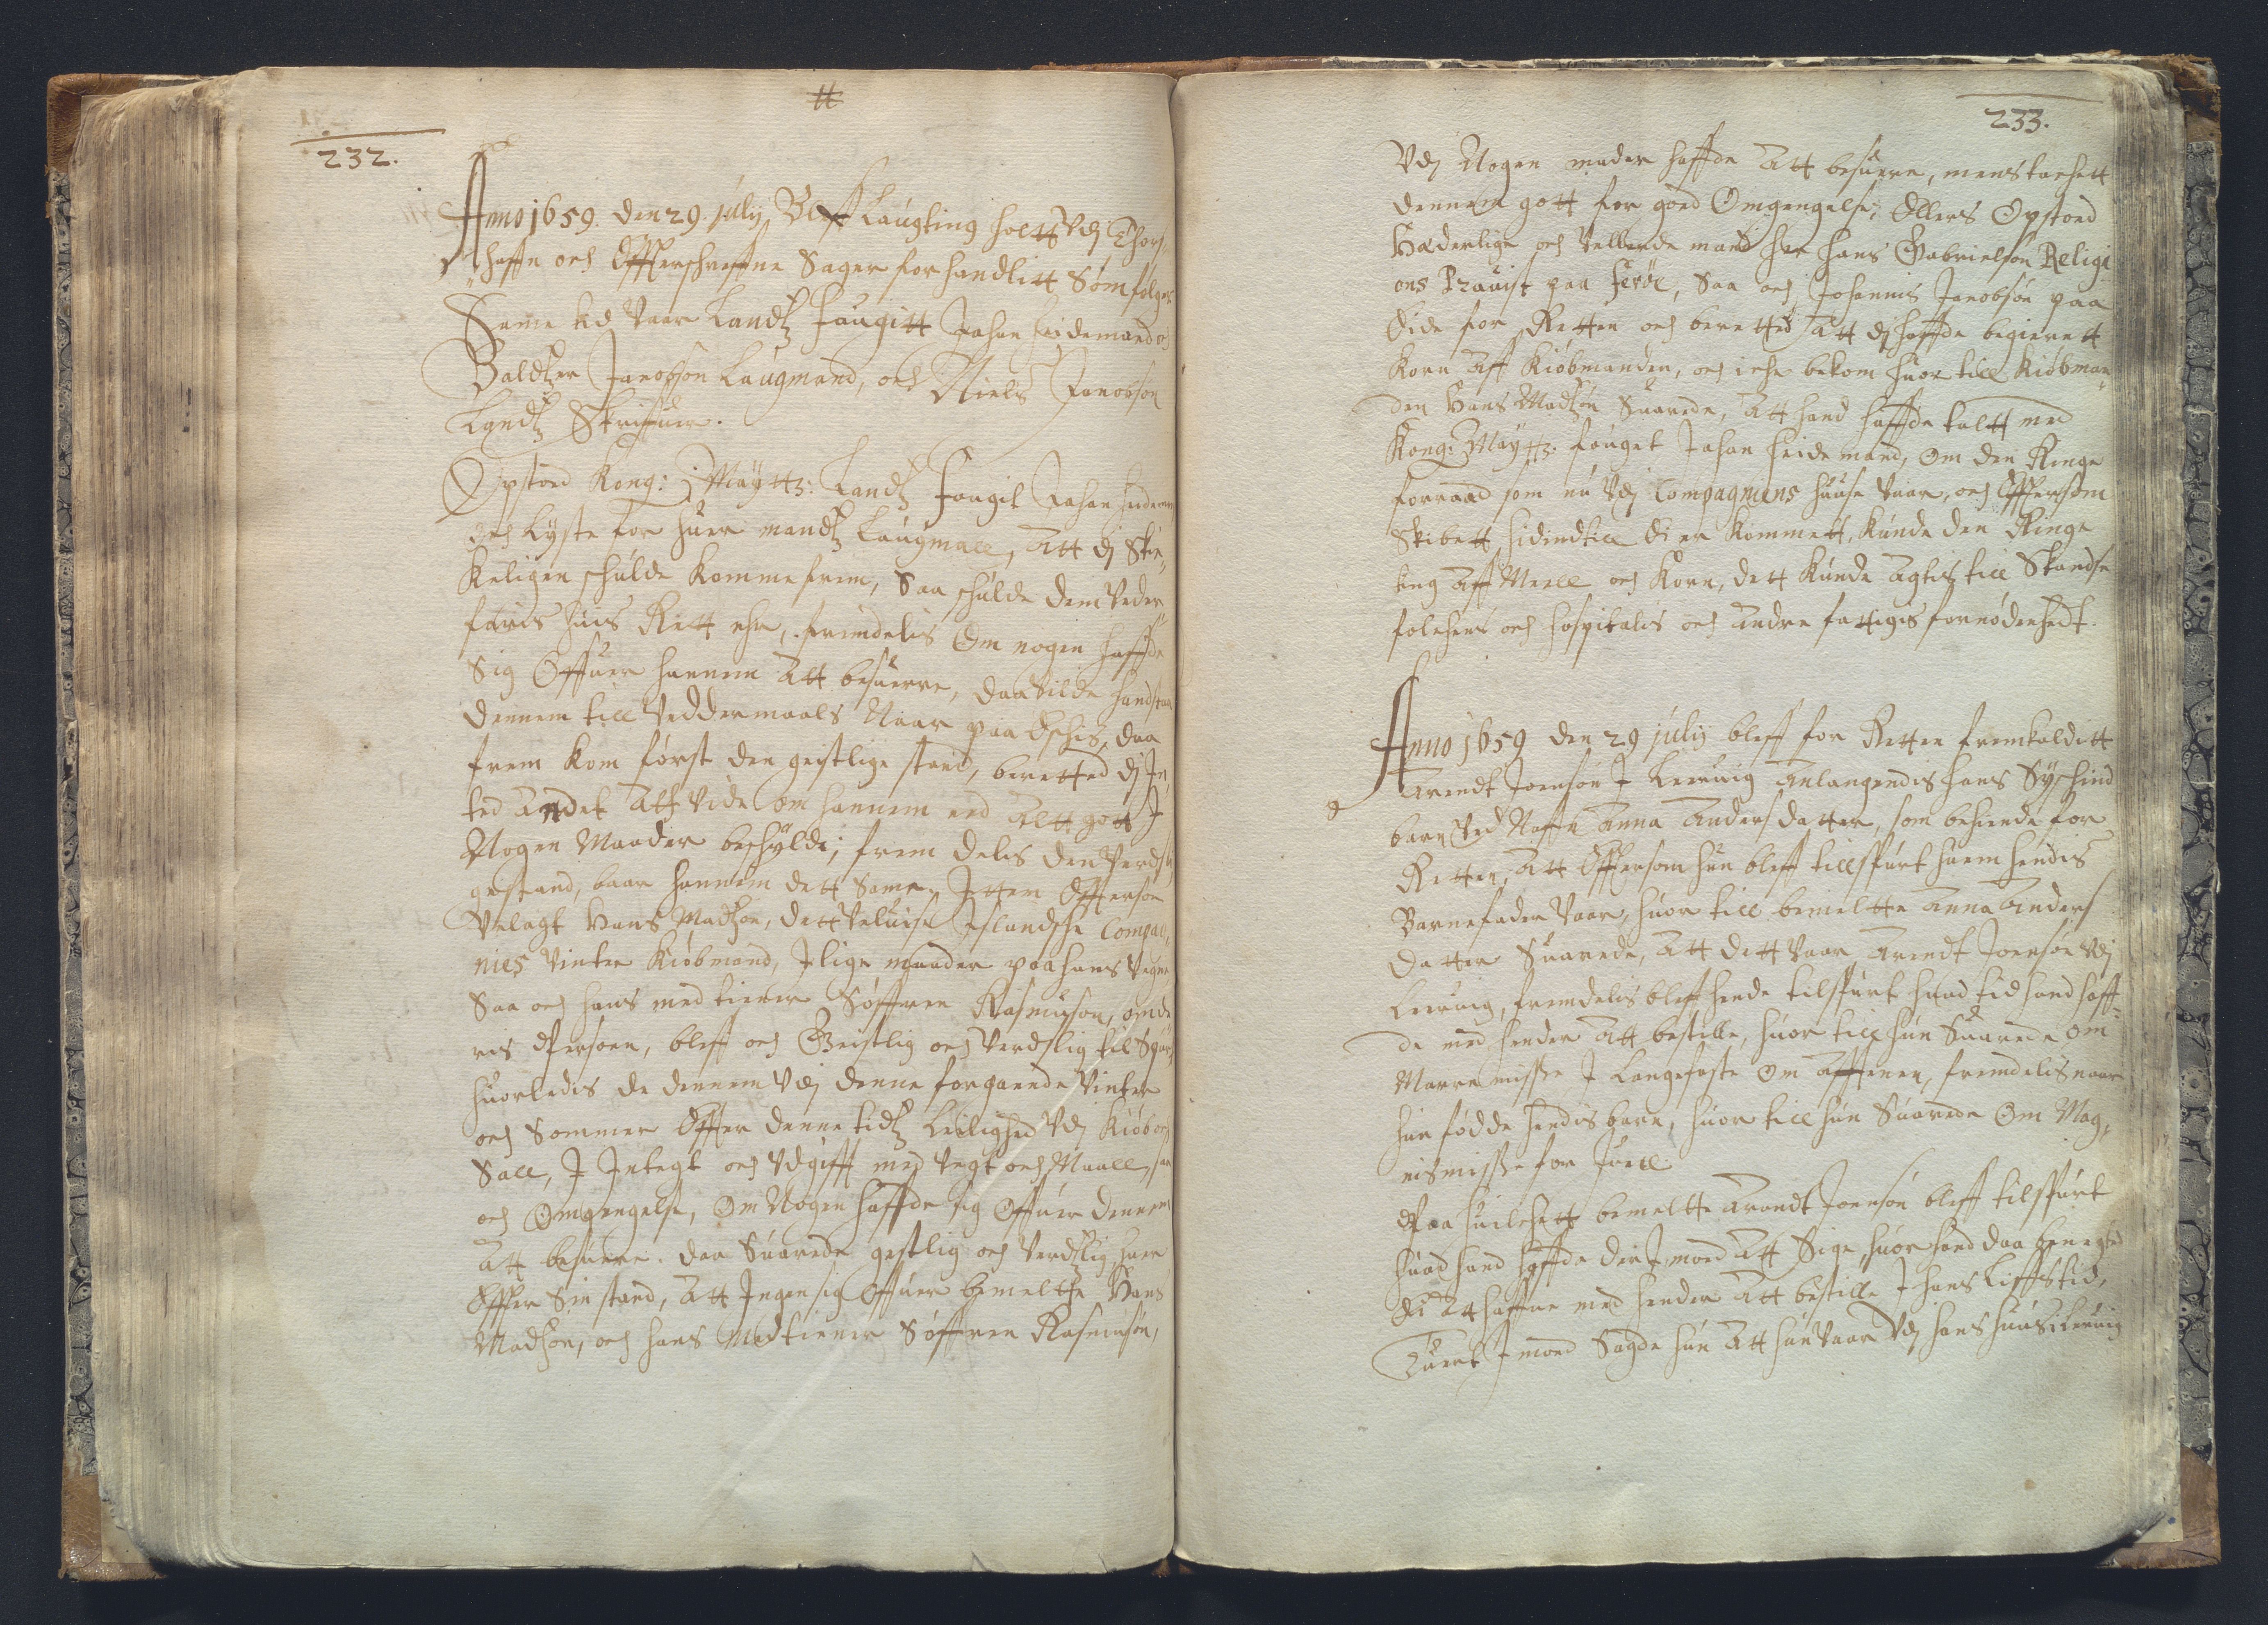 232.
Anno 1659. den 29. julij, Bleff Laugting holtt Vdj Thors„
haffn och Effterschreffne Sager forhandlitt Som følger
Same tid Vaar Landtz faugitt Johan Heidemand och
Baldtzer Jacobsøn Laugmand, och Niels Jacobsøn
Landtz Skriffuer.
Opstoed Kong: Maÿttz: Landtz Fougit Johan Heideman
och Lyste for huer mandtz Laugmall, Att dj Skie„
keligen schulde Komme frem, Saa schulde dem Veder„
faris huis Rett ehr, fremdelis Om nogen haffde
Sig Offuer hannem Att besuerre, daa Vilde hand staa
dennem till Veddermaals Naar paa Eschis, daa
frem Kom først den geistlige stand, beretted dj In„
ted Andet Att Vide om hannem end Altt gott J
Nogen Maader beschyldt; frem delis den Verdsli„
gestand, baar hannem dett Same, Ittem Effterson
Velagt Hans Madtzøn, dett Veluise Islandsche Compag„
nies Vinter Kiøbmand, J lige maader paa hans Vegne
Saa och hans med tienner Søffren Rasmuson, om de
ris Person, bleff och Geistlig och Verdslig til Spurt
huorledis de dennem Vdj denne forgaaende Vinter
och Sommer Effter denne tidtz Leilighed Vdj Kiøb och
Sall, J Jntegt och Vdgifft med Vegt och Maall, saa
och Omgengelse, Om Nogen haffde sig Offuer dennem
Att besuere. daa Suarede gestlig och Verdtzlig huer
Effter Sin stand, Att Ingen sig Offuer bemeltte Hans
Madtzøn, och hans Medtienner Søffren Rasmusøn,
233.
Vdj Nogen maader haffde Att besuere, mens tachett
dennem gott for goed Omgengelse, Ellers Opstoed
Hæderlige och Vellerde mand Her Hans Gabrielsøn Religi
ons Prauist paa Ferøe, Saa och Johannis Jacobsøn paa
Eide for Retten och beretted Att dj haffde begierett
Korn Aff Kiøbmanden, och iche bekom huor till Kiøbman„
den Hans Madtzøn Suarede, Att hand haffde taltt med
Kong: Maÿttz: fouget Johan Heidemand, Om den Ringe
forraad som nu Vdj Compagniens huuse Vaar, och Effterson
Skibett hidindtill Ei er Kommett, Kunde den Ringe
ting Aff Meell och Korn, dett Kunde Agtis till Skandse
folchens och Hospitalis och Andre fattigis fornødenhedt.
Anno 1659 den 29 julij bleff for Retten fremkalditt
Arendt Joensøn J Leeruig Anlangendis hans Syschind
barn Ved Naffn Anna Anders datter, som bekiende for
Retten, Att Effterson hun bleff tillspurt huem hendis
Barnefader Vaar, huor till bemeltte Anna Anders
datter Suarede, Att dett Vaar Arendt Joensøn Vdj
Leeruig, fremdelis bleff hende tilspurt huad tid hand haff„
de med hender Att bestille, huor till hun Suarede om
Marre misse J Langefaste Om Afftenen, fremdelis naar
hun fødde hendis barn, huor till hun Suarede Om Mag„
nismisse for Juell.
Paa huilchett bemeltte Arendt Joensøn bleff tilspurt
huad hand haffde der J moed Att Sige, huor hand daa benegted
Ei Att haffue med hender Att bestille J hans Liffs tid,
Tuert J moed Sagde hun Att hun Vaar Vdj hans huus i Leruig